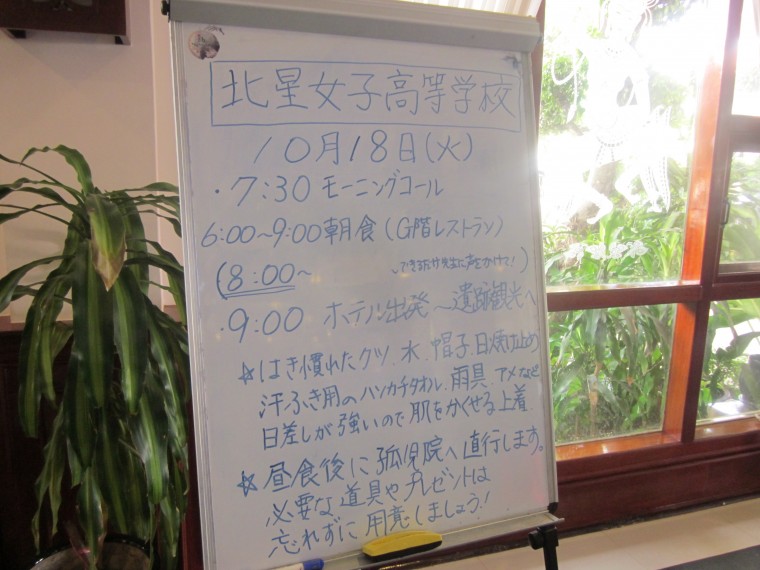 北星女子高等学校
10月18日(火)
・7:30 モーニングコール
6:00~9:00 朝食(G階レストラン)
(8:00~ できるだけ先生に声をかけて!)
・9:00 ホテル出発~遺跡観光へ
☆はき慣れたクツ、水、帽子、日焼け止め
汗ふき用のハンカチタオル、雨具、アメなど
日差しが強いので肌をかくせる上着
☆昼食後に孤児院へ直行します。
必要な道具やプレゼントは
忘れずに用意しましょう!